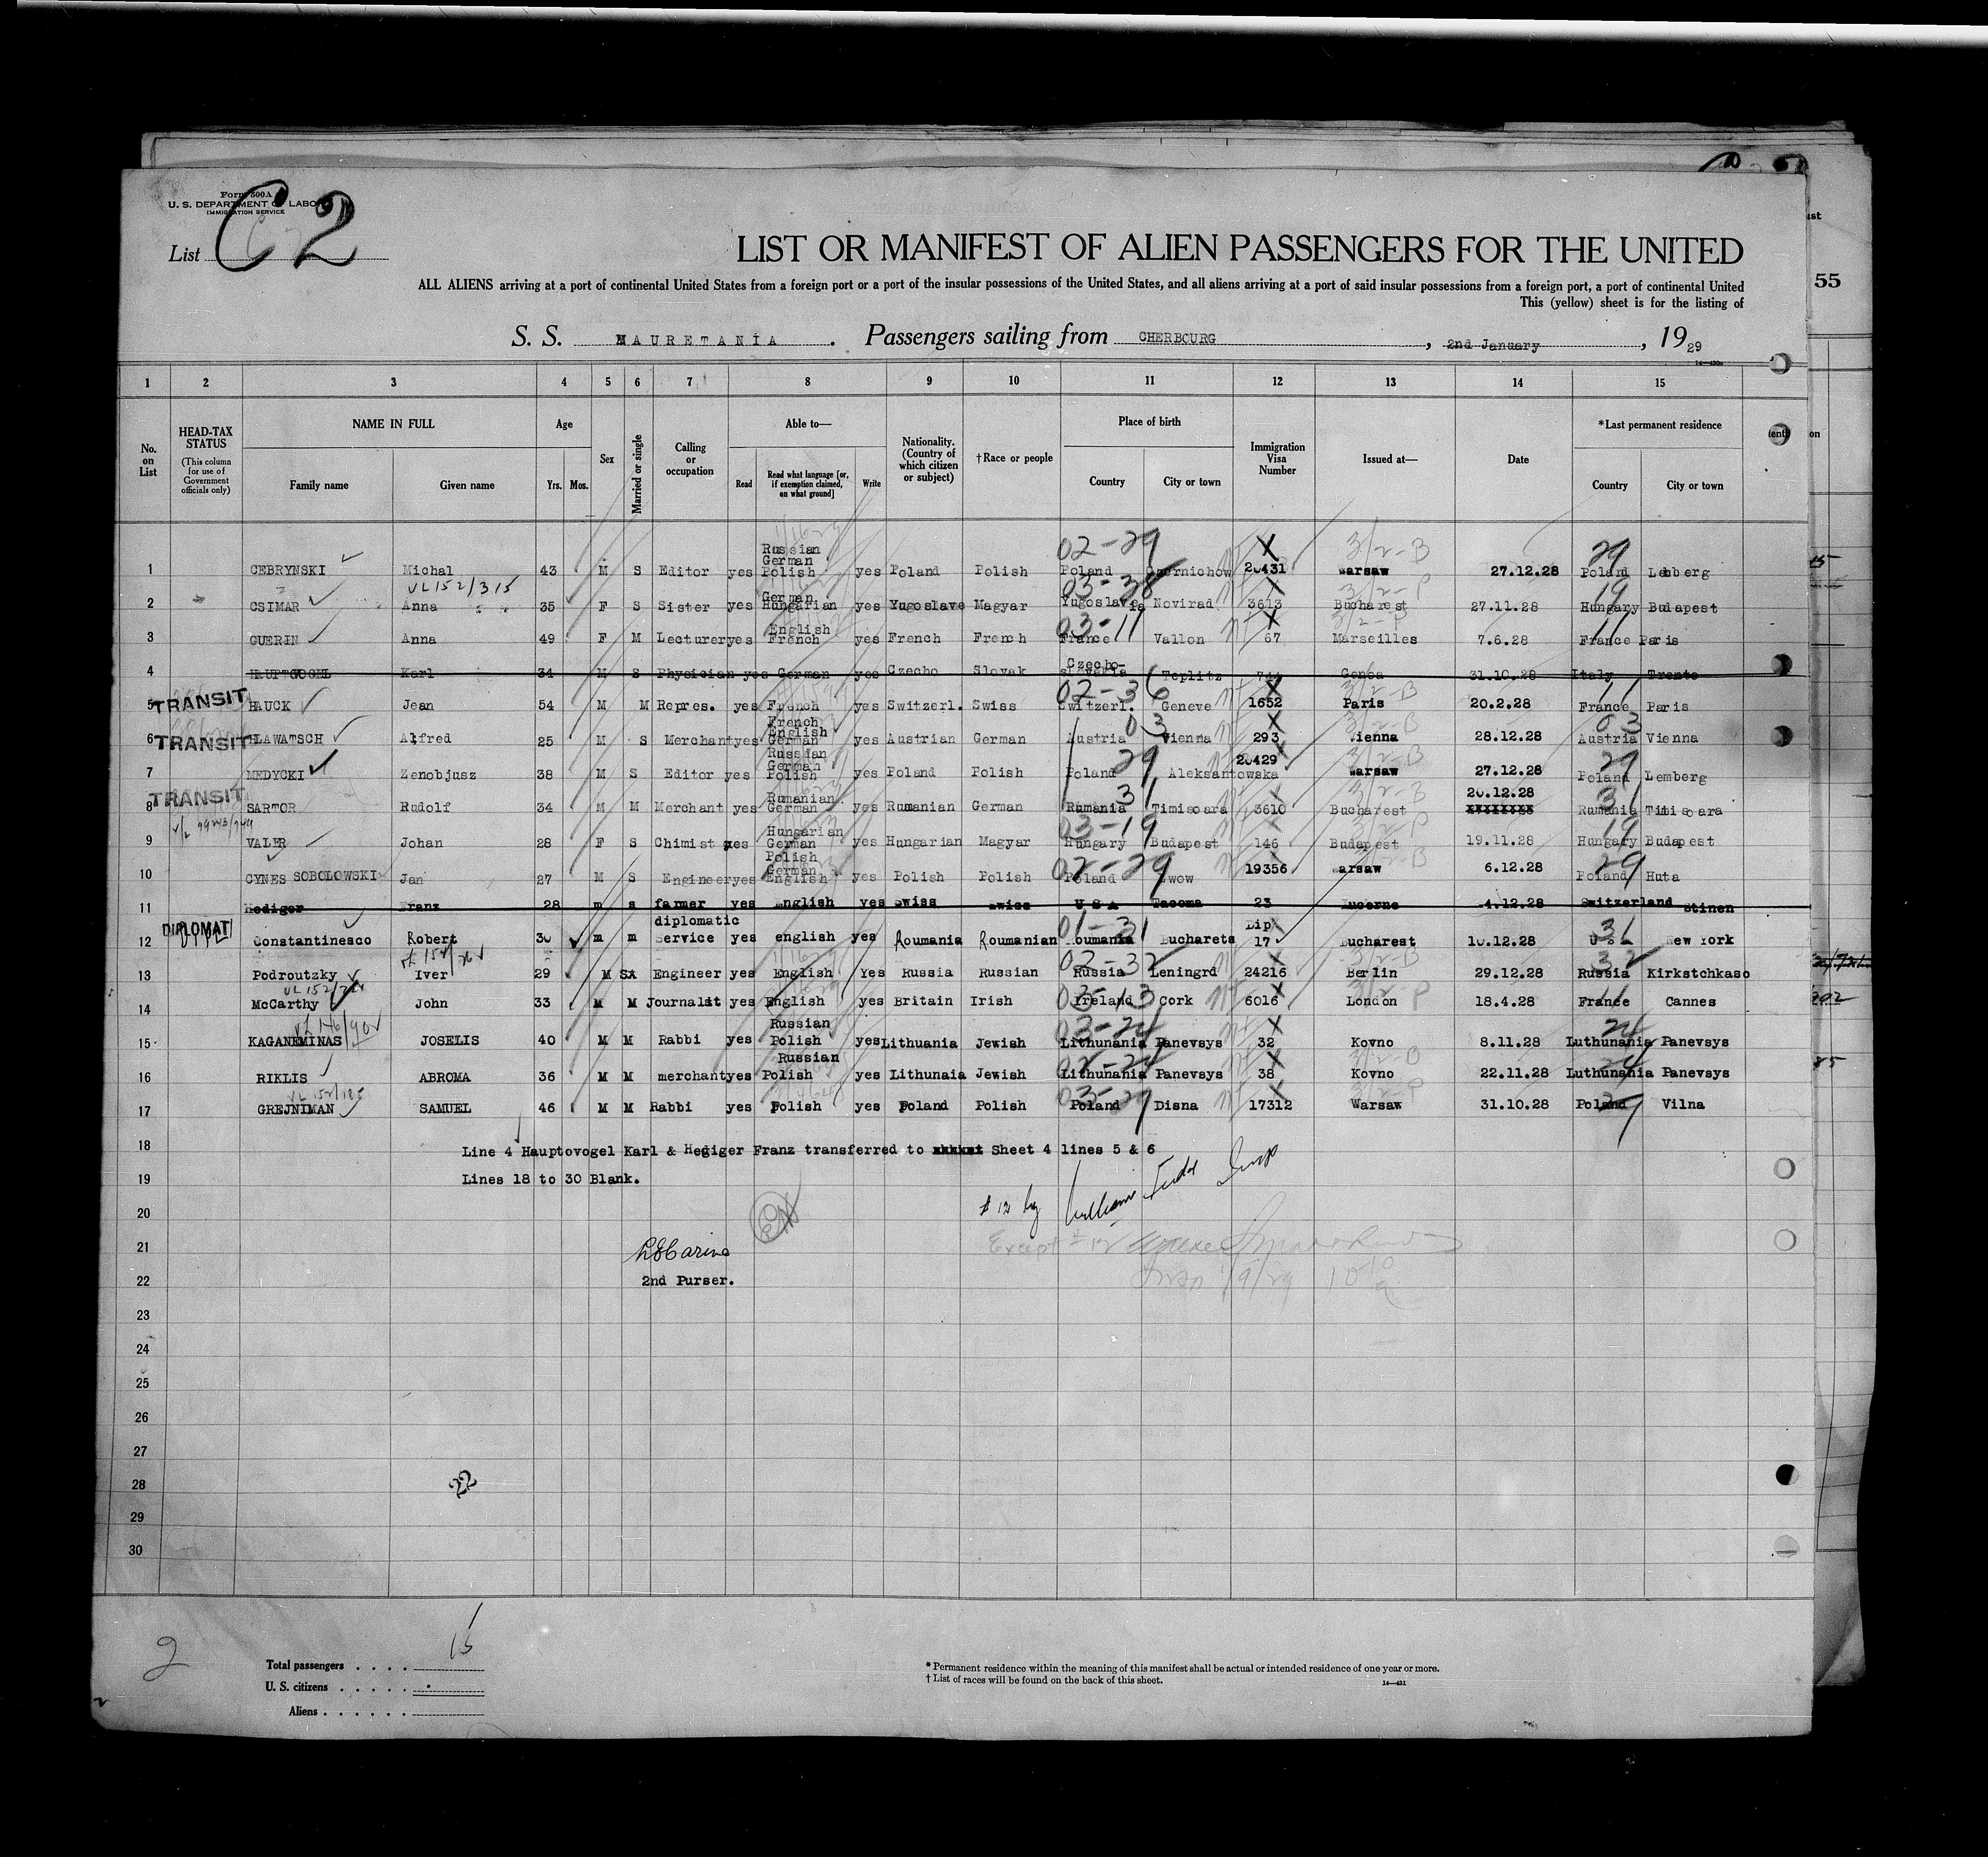 Form 500A
U. S. DEPARTMENT OF LABOR
IMMIGRATION SERVICE
List C 2
LIST OR MANIFEST OF ALIEN PASSENGERS FOR THE UNITED
ALL ALIENS arriving at a port of continental United States from a foreign port or a port of the insular possessions of the United States, and all aliens arriving at a port of said insular possessions from a foreign port, a port of continental United
This (yellow) sheet is for the listing of
55
S. S. MAURETANIA. Passengers sailing from CHERBOURG, 2nd January, 1929
1 2 3 4 5 6 7 8 9 10 11 12 13 14 15
No. on List
HEAD-TAX STATUS
(This column for use of Government officials only)
NAME IN FULL
Family name
Given name
Age
Yrs. Mos.
Sex
Married or single
Calling or occupation
Able to—
Read
Read what language [or, if exemption claimed, on what ground]
Write
Nationality. (Country of which citizen or subject)
†Race or people
Place of birth
Country
City or town
Immigration Visa Number
Issued at—
Date
*Last permanent residence
Country
City or town
1 CEBRYNSKI Michal 43 M S Editor yes Russian German Polish yes Poland Polish Poland Czernichow 20431 Warsaw 27.12.28 Poland Lemberg
02-29 X 3/2-B 29
VL152/315
2 CSIMAR Anna 35 F S Sister yes German Hungarian yes Yugoslave Magyar Yugoslavia Novirad 3613 Bucharest 27.11.28 Hungary Budapest
03-38 X 3/2-P 19
3 GUERIN Anna 49 F M Lecturer yes English French yes French French France Vallon 67 Marseilles 7.6.28 France Paris
03-11 X 3/2-P 11
4 HAUPTVOGEL Karl 34 M S Physician yes German yes Czecho Slovak Czecho-slovakia Toplitz 744 Genoa 31.10.28 Italy Trento
TRANSIT
5 HAUCK Jean 54 M M Repres. yes French yes Switzerl. Swiss Switzerl. Geneve 1652 Paris 20.2.28 France Paris
02-36 X 3/2-B 11
TRANSIT
6 HLAWATSCH Alfred 25 M S Merchant yes French English German yes Austrian German Austria Vienna 293 Vienna 28.12.28 Austria Vienna
03 X 3/2-B 03
7 MEDYCKI Zenobjusz 38 M S Editor yes Russian German Polish yes Poland Polish Poland Aleksantowska 20429 Warsaw 27.12.28 Poland Lemberg
29 3/2-B 29
TRANSIT
8 SARTOR Rudolf 34 M M Merchant yes Rumanian German yes Rumanian German Rumania Timisoara 3610 Bucharest 20.12.28 Rumania Timisoara
31 3/2-B 31
9 VALER Johan 28 F S Chimist yes Hungarian German yes Hungarian Magyar Hungary Budapest 146 Budapest 19.11.28 Hungary Budapest
03-19 3/2-P 19
10 CYNES SOBOLOWSKI Jan 27 M S Engineer yes Polish German English yes Polish Polish Poland Lwow 19356 Warsaw 6.12.28 Poland Huta
02-29 29
11 Hediger Franz 28 m s farmer yes English yes Swiss Swiss U S A Tacoma 23 Lucerne 4.12.28 Switzerland Stinen
DIPLOMAT
12 Constantinesco Robert 30 m m diplomatic Service yes english yes Roumania Roumanian Roumania Bucharets Dip 17 Bucharest 10.12.28 U S A New York
01-31 31
13 Podroutzky Iver 29 M S Engineer yes English Yes Russia Russian Russia Leningrd 24216 Berlin 29.12.28 Russia Kirkstchkaso
02-32 3/2-B 32
14 McCarthy John 33 M M Journalst yes English yes Britain Irish Ireland Cork 6016 London 18.4.28 France Cannes
03-13 X 3/2-P 11
15 KAGANEMINAS JOSELIS 40 M M Rabbi yes Russian Polish yes Lithuania Jewish Lithunania Panevsys 32 Kovno 8.11.28 Luthunania Panevsys
03-24 X 24
16 RIKLIS ABROMA 36 M M merchant yes Russian Polish yes Lithunaia Jewish Lithunania Panevsys 38 Kovno 22.11.28 Luthunania Panevsys
02-24 X 3/2-B 24
17 GREJNIMAN SAMUEL 46 M M Rabbi yes Polish yes Poland Polish Poland Disna 17312 Warsaw 31.10.28 Poland Vilna
03-29 X 3/2-P 29
18 Line 4 Hauptovogel Karl & Hegiger Franz transferred to Sheet 4 lines 5 & 6
19 Lines 18 to 30 Blank.
20 # 12 by William Insp
21 Except # 12
22 2nd Purser.
1/9/29
23
24
25
26
27
28 22
29
30
2
15
Total passengers . . . .
U. S. citizens . . . . .
Aliens . . . . . .
* Permanent residence within the meaning of this manifest shall be actual or intended residence of one year or more.
† List of races will be found on the back of this sheet.
14—431